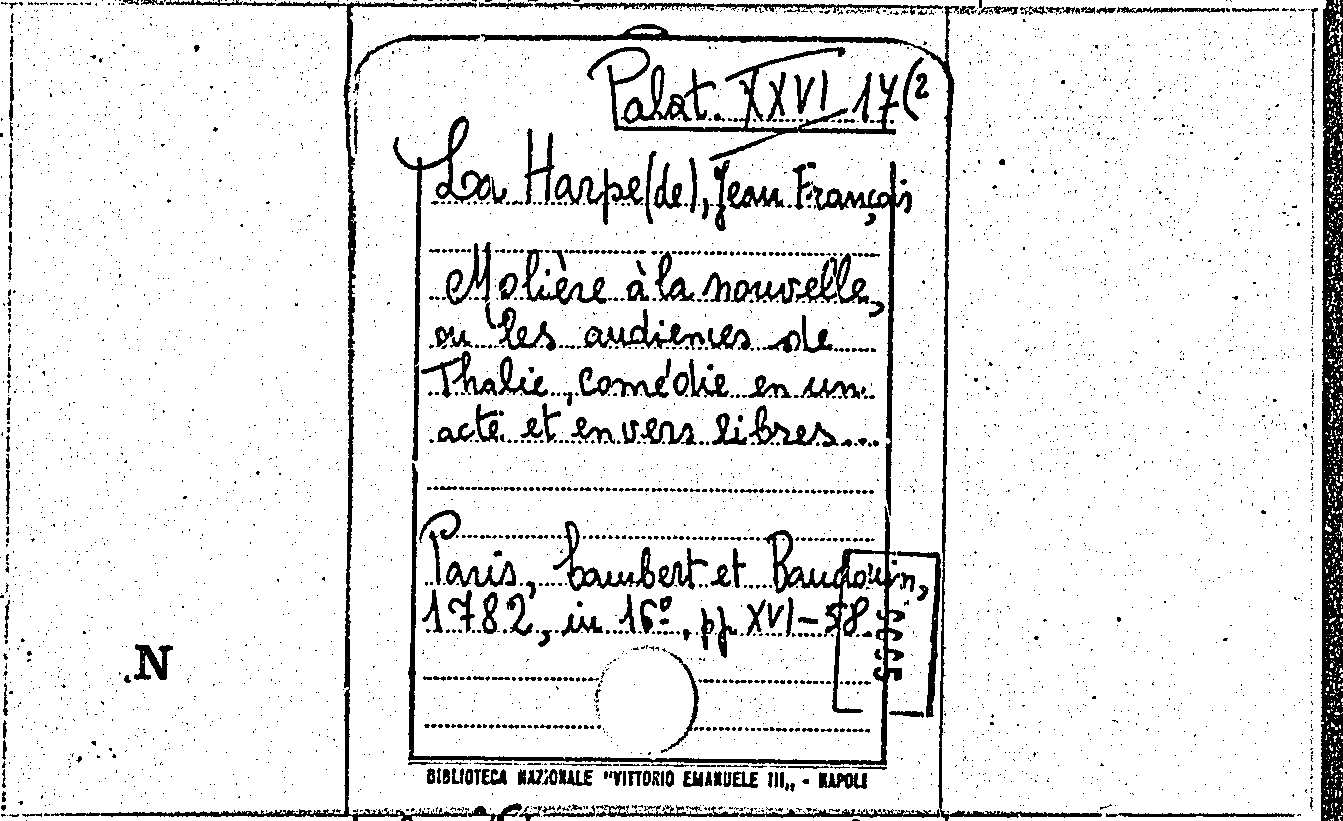 Palat. XXVI 17(2
La Harpe (de), Jean François
Molière à la nouvelle,
ou les audiences de
Thalie, comédie en un
acte et en vers libres...
Paris, Lambert et Baudouin,
1782, in 16º, pp XVI-58.
N
BIBLIOTECA NAZIONALE "VITTORIO EMANUELE III„ - NAPOLI